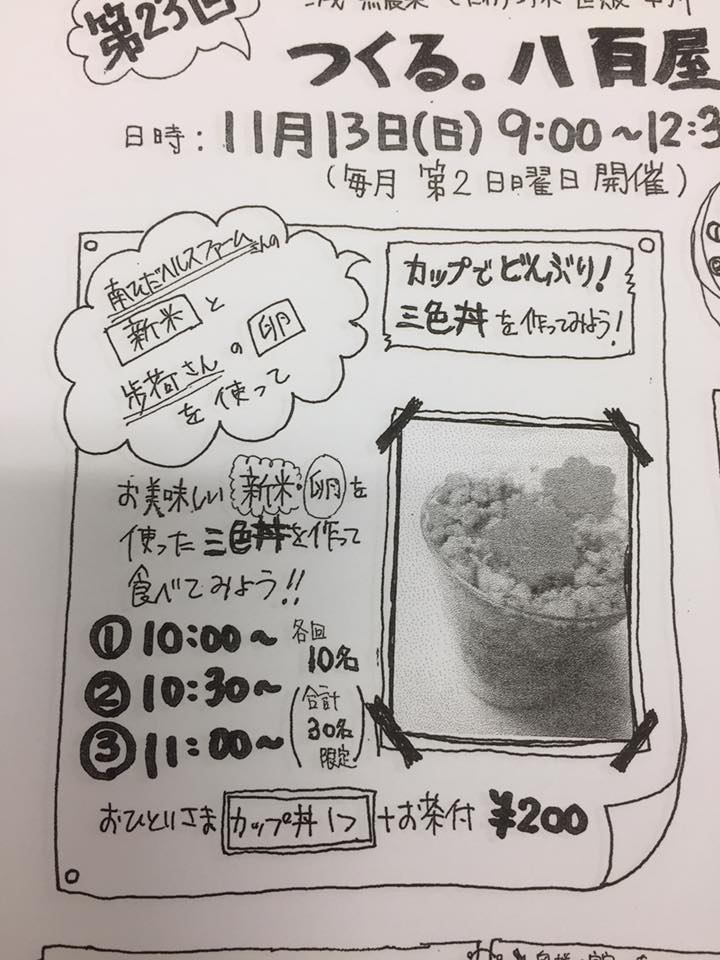 第23回
つくる。八百屋
日時: 11月13日(日) 9:00~12:3
(毎月 第2日曜日 開催)
南ひだヘルスファームさんの
新米と
歩荷さんの卵
を使って
カップでどんぶり!
三色丼を作ってみよう!
お美味しい新米・卵を
使った三色丼を作って
食べてみよう!!
①10:00~
②10:30~
③11:00~
各回
10名
(合計
30名
限定)
おひとりさま カップ丼1つ+お茶付 ¥200